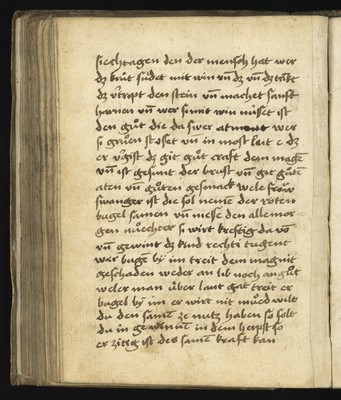 siechtagen den der mensch hat wer
dz krut sudet mit win vn̄ dz vn̄ dz trinkt
dz vertript den stein vn̄ machet sanft
harnen vn̄ wer sinnt win nüset ist
den gůt die da swer atment wer
si grůen stoset vn̄ in most leit e dz
er dz git gůt craft dem mage
vn̄ ist gesunt der brust vn̄ git gůtē
aten vn̄ gůten gesmack wele frow
swanger ist die sol nemē der roten
bugel samen vn̄ niesē den alle mor-
gen nuechter si wirt kreftig da vō
vn̄ gewint dz kind rechti tugent
wer bugē by im treit dem mag nit
geschaden weder an lib noch an gůt
weler man über lant gat treit er
bugel by im er wirt nit můed wilt
du den samē ze nutz haben so solt
du in gewinnē in dem herpst so
er zitig ist des samē kraft kan